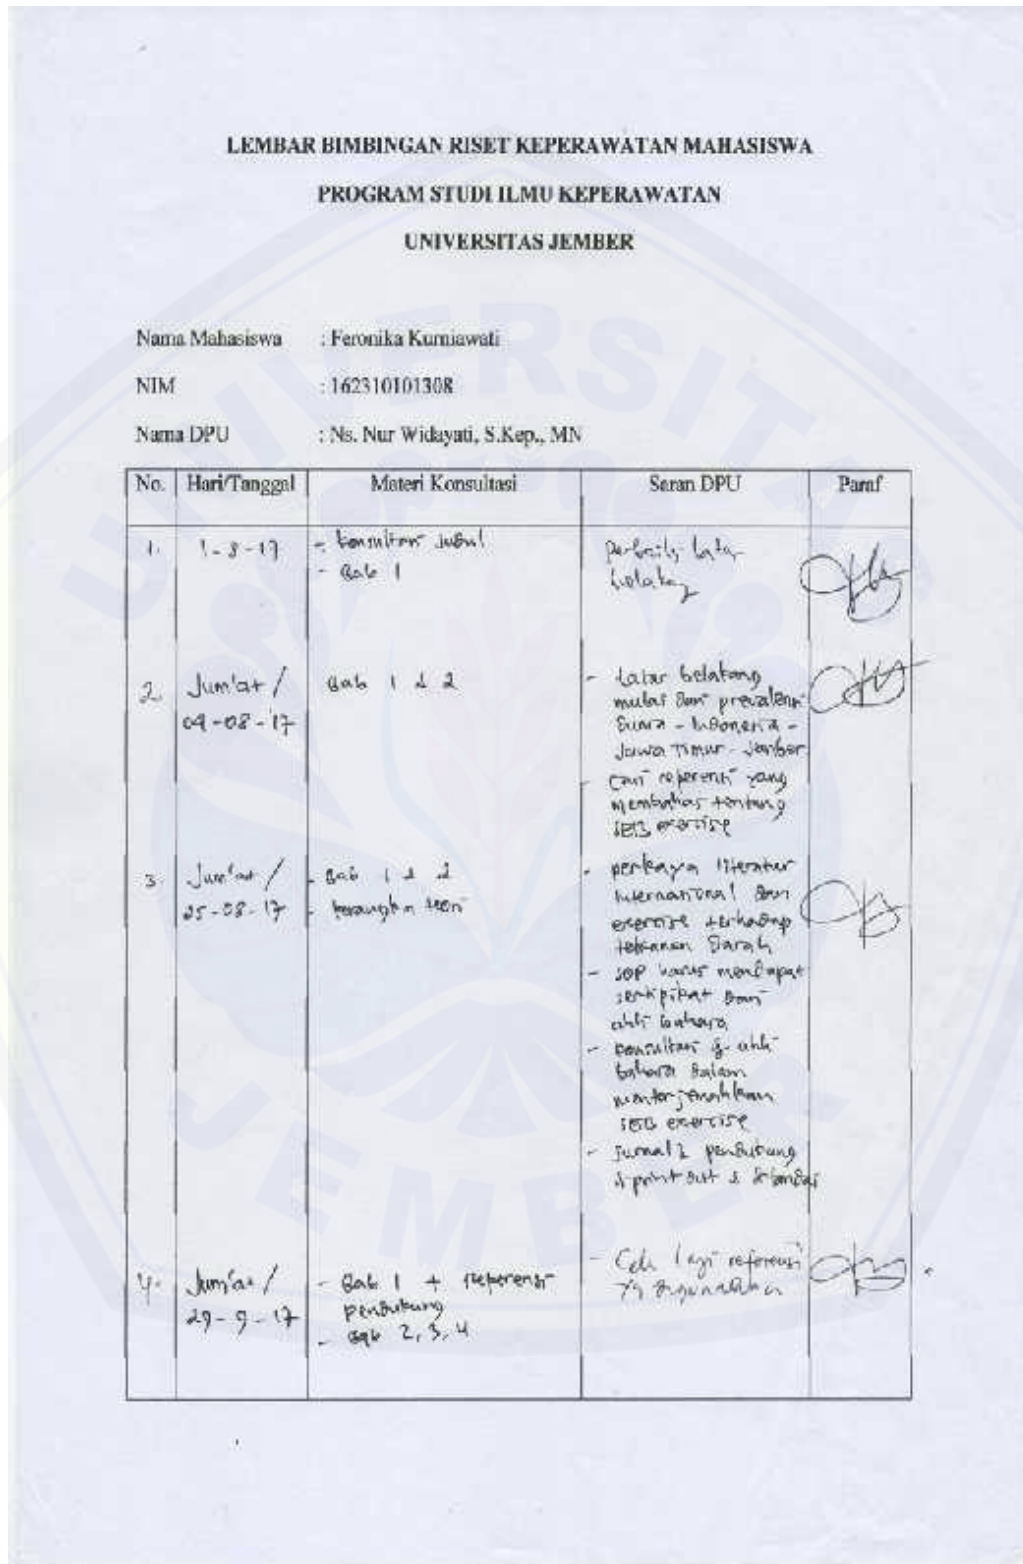 LEMBAR BIMBINGAN RISET KEPERAWATAN MAHASISWA
PROGRAM STUDI ILMU KEPERAWATAN
UNIVERSITAS JEMBER
Nama Mahasiswa : Feronika Kurniawati
NIM : 162310101308
Nama DPU : Ns. Nur Widayati, S.Kep., MN
No. Hari/Tanggal Materi Konsultasi Saran DPU Paraf
1. 1-8-17
- konsultasi judul
- Bab 1
perbaiki latar
belakang
2. Jum'at /
04-08-17
Bab 1 & 2
- Latar belakang
mulai dari prevalensi
Dunia - Indonesia -
Jawa Timur - Jember
- cari referensi yang
membahas tentang
exercise
3. Jum'at /
25-08-17
- Bab 1 & 2
- kerangka teori
- perkaya literatur
Internasional dari
exercise terhadap
tekanan Darah
- SOP harus mendapat
sertifikat dari
ahli bahasa
- konsultasi dg ahli
bahasa dalam
menterjemahkan
exercise
- Jurnal2 pendukung
di print out &
4. Jum'at /
29-9-17
- Bab 1 + referensi
pendukung
- Bab 2, 3, 4
- Cek lagi referensi
yg digunakan
UNIVERSITAS
JEMBER